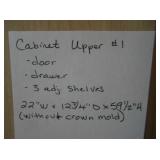 Cabinet Upper #1
- door
- drawer
- 3 adj shelves
22"W x 12 3/4" D x 59 1/2" H
(without crown mold)